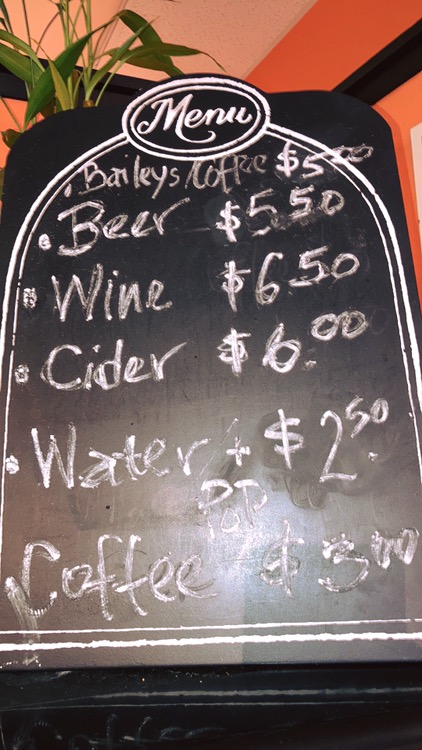 Menu
Baileys/Coffee $5.00
Beer $5.50
Wine $6.50
Cider $6.00
Water + $2.50
POP
Coffee $3.00